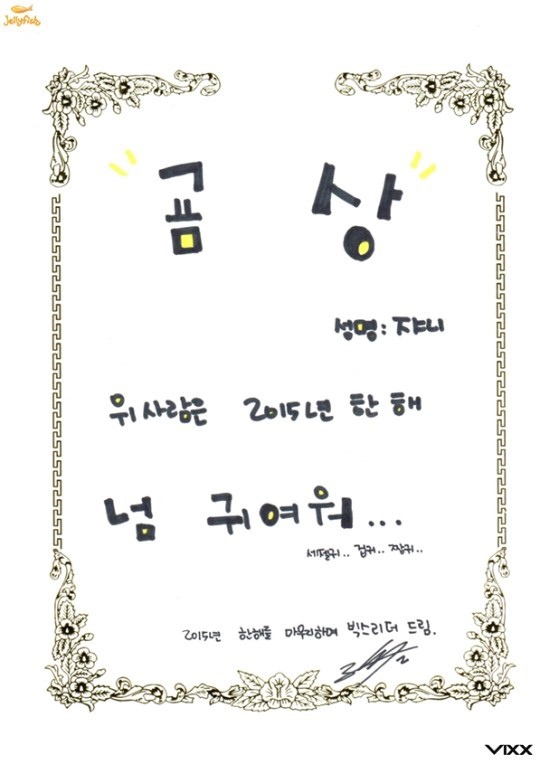 Jellyfish
굠 상
성명: 쟈니
위 사람은 2015년 한 해
넘 귀여워...
세젤귀.. 겁귀.. 짱귀..
2015년 한해를 마무리하며 빅스리더 드림.
VIXX